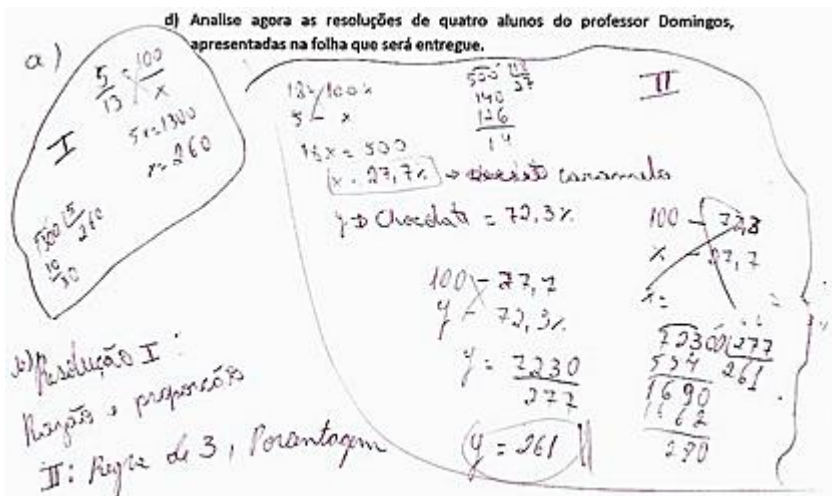 d) Analise agora as resoluções de quatro alunos do professor Domingos,
apresentadas na folha que será entregue.
a)
I
5/13 = 100/x
5x=1300
x=260
1300 5
10 260
30
II
18 - 100%
5 - x
18x = 500
x = 27,7% → caramelo
500 18
140 27
126
14
y → Chocolate = 72,3%
100 - 27,7
y - 72,3%
y = 7230
277
y = 261
100 - 72,3
x - 27,7
x =
72300 277
554 261
1690
1662
280
b) Resolução I:
Razão e proporção
II: Regra de 3, Porcentagem